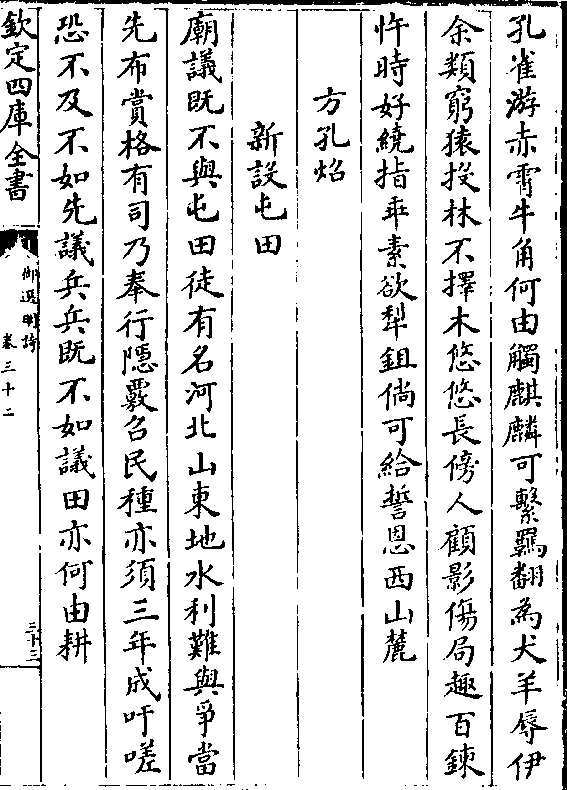 孔雀游赤霄牛角何由觸麒麟可繫羈翻為犬羊辱伊
余類窮猿投林不擇木悠悠長傍人顧影傷局趣百鍊
忤時好繞指乖素欲犁鉏倘可給誓恩西山麓
方孔炤
新設屯田
廟議既不與屯田徒有名河北山東地水利難與爭當
先布賞格有司乃奉行隱覈召民種亦須三年成吁嗟
恐不及不如先議兵兵既不如議田亦何由耕
欽定四庫全書
御選明詩
卷三十二
三十三